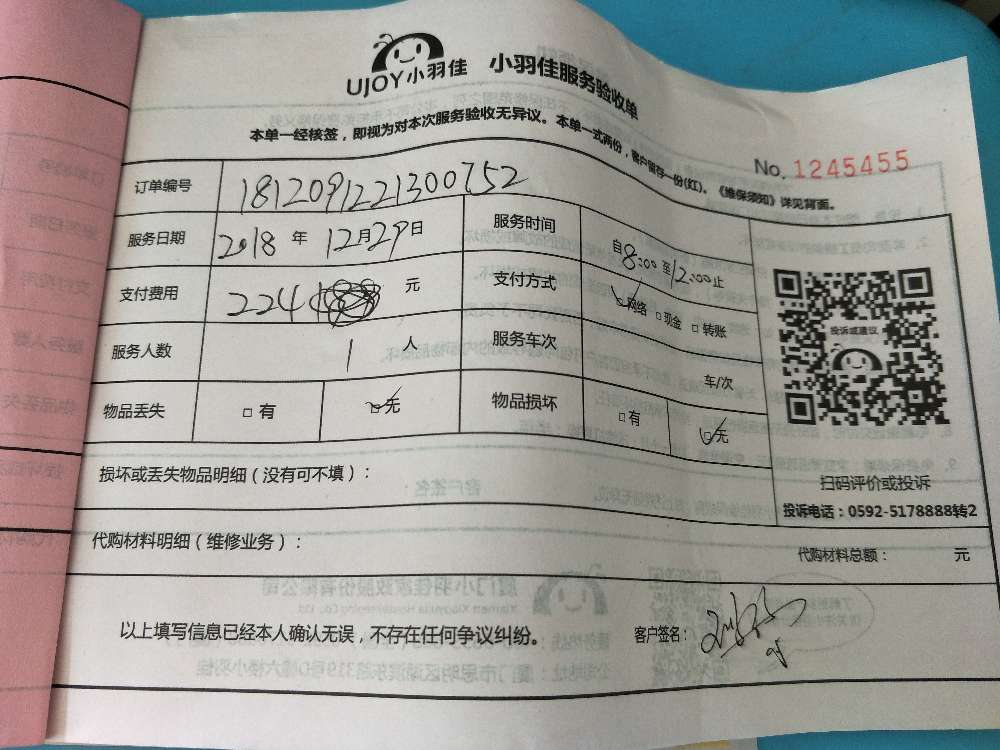 UJOY小羽佳 小羽佳服务验收单
本单一经核签，即视为对本次服务验收无异议。本单一式两份，客户留存一份(红)。《维保须知》详见背面。
No. 1245455
订单编号 1812091221300752
服务日期 2018 年 12月29日 服务时间 自8:00至12:00止
支付费用 224 元 支付方式 ☑网络 □现金 □转账
服务人数 1 人 服务车次 车/次
物品丢失 □有 ☑无 物品损坏 □有 ☑无
投诉或建议
扫码评价或投诉
投诉电话：0592-5178888转2
损坏或丢失物品明细（没有可不填）：
代购材料明细（维修业务）： 代购材料总额： 元
以上填写信息已经本人确认无误，不存在任何争议纠纷。 客户签名：